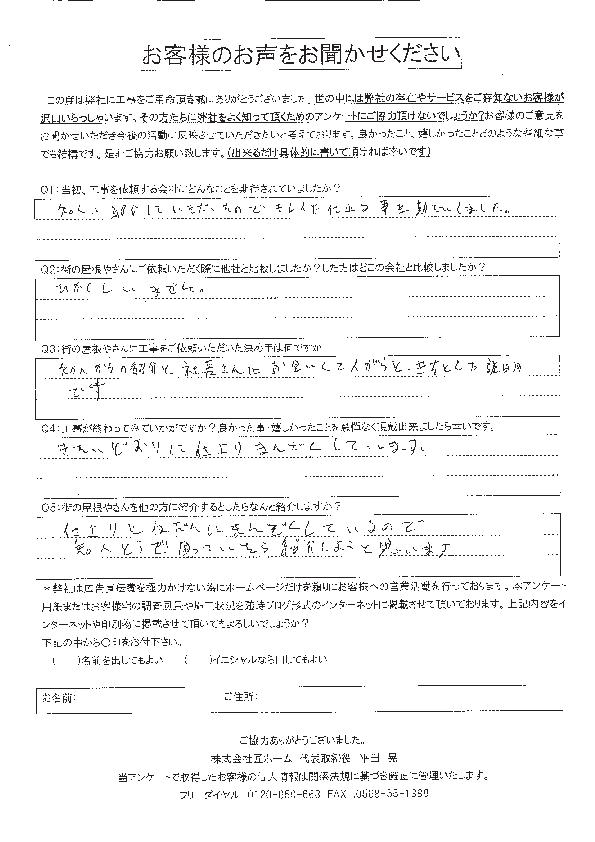 お客様のお声をお聞かせください
この度は弊社に工事をご用命頂き誠にありがとうございました。世の中には弊社の存在やサービスをご存知ないお客様が
沢山いらっしゃいます。その方たちに弊社をよく知って頂くためのアンケートにご協力頂けないでしょうか?お客様のご意見を
お聞かせいただき今後の活動に反映させていただきたいと考えております。良かったこと、嬉しかったことどのような些細な事
でも結構です。是非ご協力お願い致します。(出来るだけ具体的に書いて頂ければ幸いです)
Q1:当初、工事を依頼する会社にどんなことを期待されていましたか?
知人に紹介していただいたので きれいな仕上り 事を期待しました。
Q2:街の屋根やさんにご依頼いただく際に他社と比較しましたか?した方はどこの会社と比較しましたか?
ひかくしていません。
Q3:街の屋根やさんに工事をご依頼いただいた決め手は何ですか
知人からの紹介と 社長さんにお会いして人がらと
です
Q4:工事が終わってみていかがですか?良かった事・嬉しかったことを忌憚なく記載出来ましたら幸いです。
仕上り まんぞくしています。
Q5:街の屋根やさんを他の方に紹介するとしたらなんと紹介しますか?
仕上りとねだんにまんぞくしているので
知人などで困っていたら紹介しようと思います
*弊社は広告宣伝費を極力かけない為にホームページだけを頼りにお客様への営業活動を行っております。本アンケート
用紙またはお客様宅の調査風景や施工状況を随時ブログ形式のインターネットに掲載させて頂いております。上記内容をイ
ンターネットや印刷物に掲載させて頂いてもよろしいでしょうか?
下記の中から〇印をお付け下さい。
( )名前を出してもよい ( )イニシャルなら出してもよい
お名前: ご住所:
ご協力ありがとうございました。
株式会社匠ホーム 代表取締役 平田 晃
当アンケートで取得したお客様の個人情報は関係法規に基づき厳正に管理いたします。
フリーダイヤル FAX